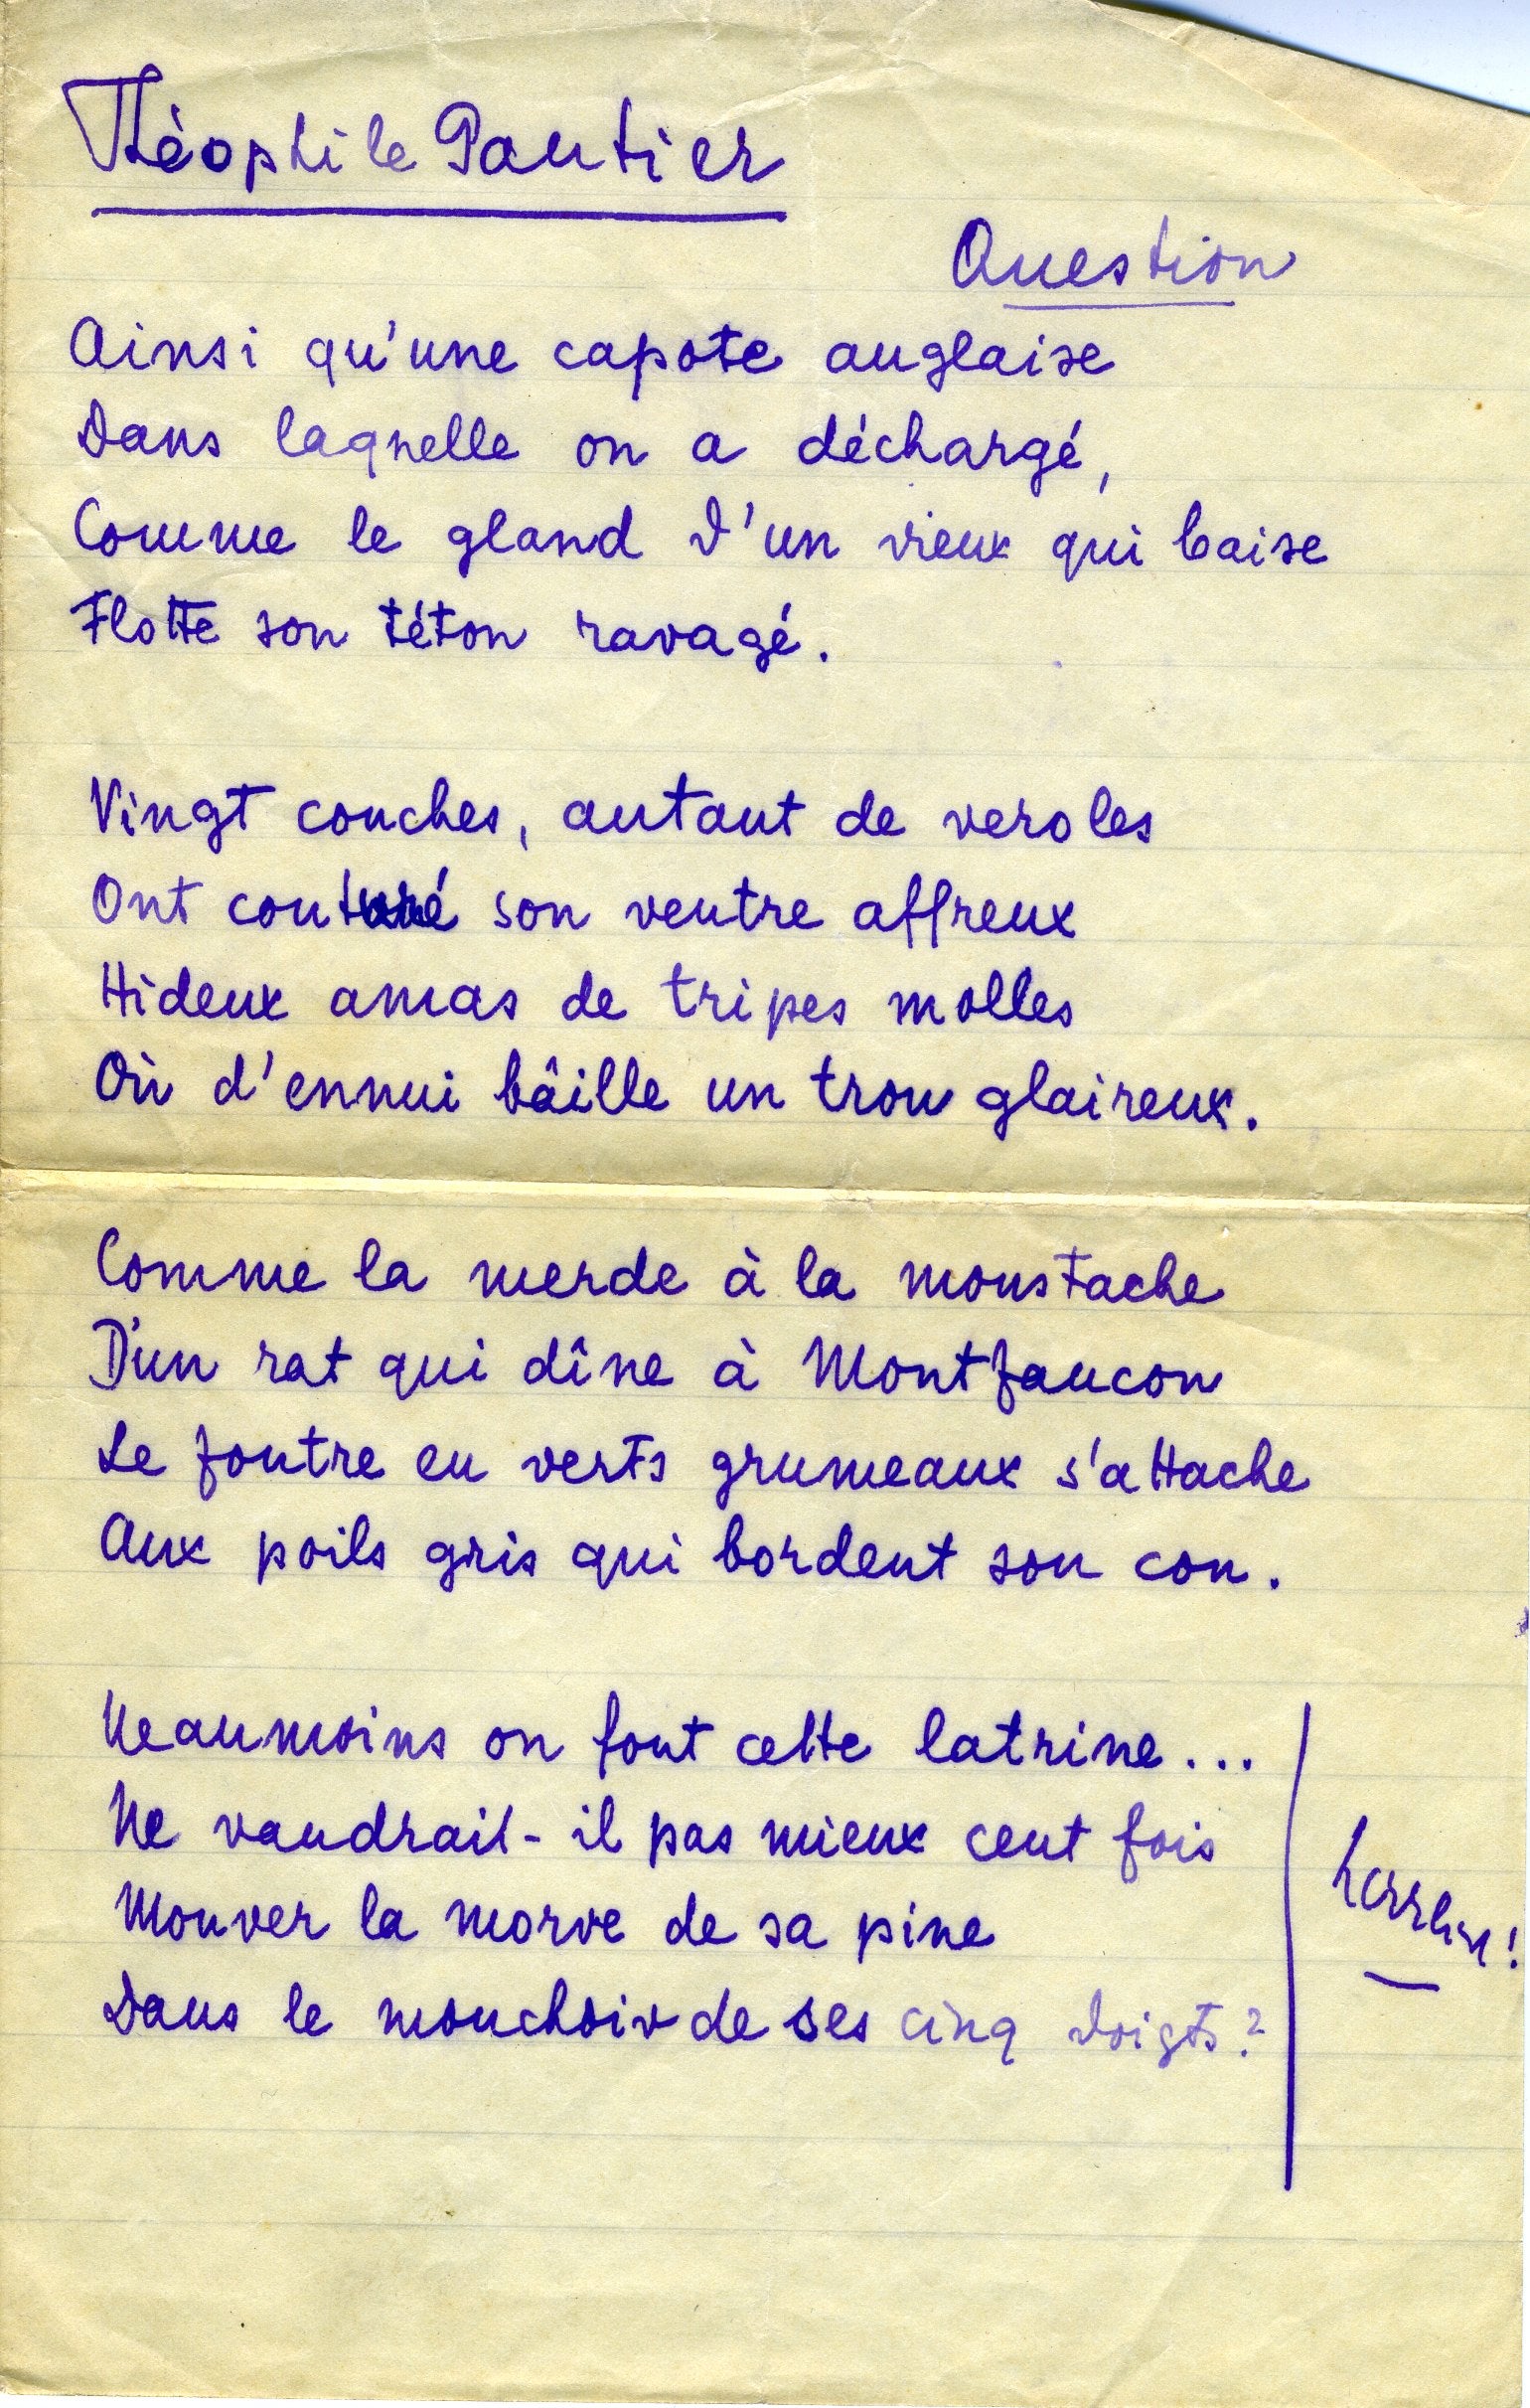 Théophile Gautier
Question
Ainsi qu'une capote anglaise
Dans laquelle on a déchargé,
Comme le gland d'un vieux qui baise
Flotte son téton ravagé.
Vingt couches, autant de veroles
Ont couturé son ventre affreux
Hideux amas de tripes molles
Où d'ennui bâille un trou glaireux.
Comme la merde à la moustache
D'un rat qui dîne à Montfaucon
Le foutre en verts grumeaux s'attache
Aux poils gris qui bordent son con.
Neaumoins on fout cette latrine...
Ne vaudrait-il pas mieux cent fois
Mouver la morve de sa pine
Dans le mouchoir de ses cinq doigts?